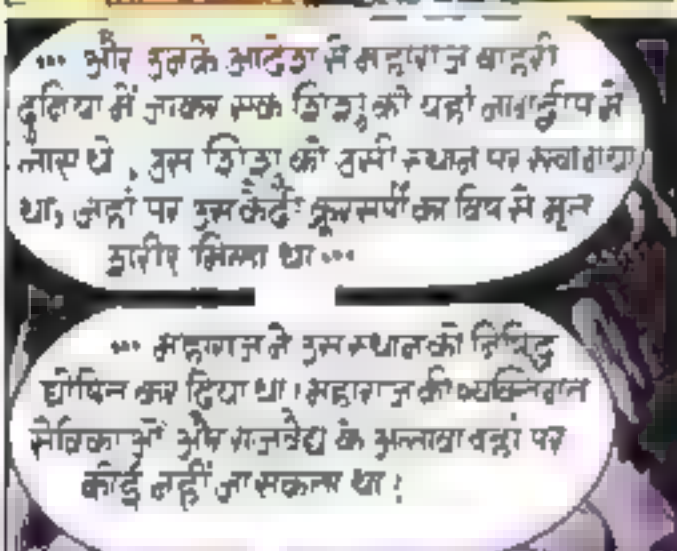 ... और उनके आदेश से महाराज बाहरी
दुनिया में जाकर एक शिशु को यहां नागद्वीप में
लाए थे, उस शिशु को उसी स्थान पर रखा गया
था, जहां पर क्रूरसर्पी का विष से मृत
शरीर मिला था...
... महाराज ने उस स्थान को निषिद्ध
घोषित कर दिया था। महाराज की व्यक्तिगत
सेविकाओं और राजवैद्य के अलावा वहां पर
कोई नहीं जा सकता था!